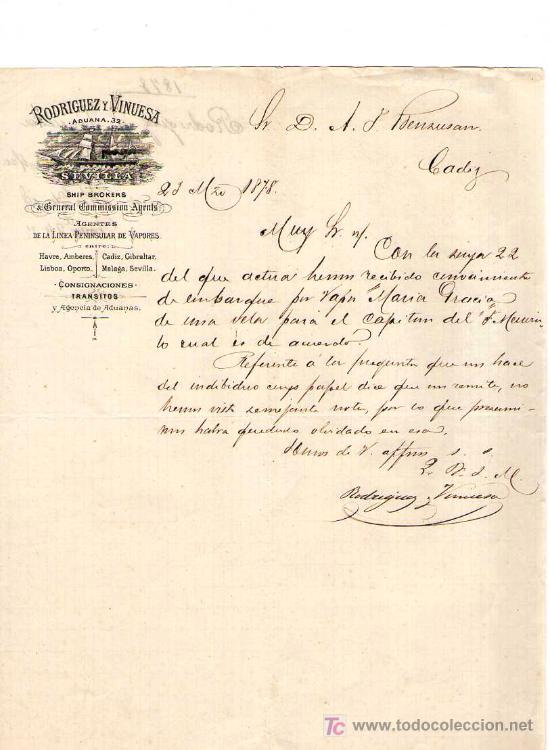 RODRIGUEZ Y VINUESA
ADUANA. 32
SEVILLA
SHIP BROKERS
& General Commission Agents
AGENTES
DE LA LINEA PENINSULAR DE VAPORES
entre
Havre, Amberes, Cadiz, Gibraltar,
Lisboa, Oporto, Malaga, Sevilla.
CONSIGNACIONES
TRANSITOS
y Agencia de Aduanas.
Sr. D. A. J. Bensusan
Cadiz
23 Mzo 1878.
Muy Sr. n/.
Con la suya 22
del que actua hemos recibido conocimiento
de embarque por Vapor "Maria Gracia"
de una vela para el Capitan del
lo cual es de acuerdo.
Referente á la pregunta que nos hace
del individuo cuyo papel dice que nos remite, no
hemos visto semejante nota, por lo que presumi-
mos habra quedado olvidado en esa.
Somos de V. affmos s. s.
Q. B. S. M.
Rodriguez y Vinuesa
TC www.todocoleccion.net